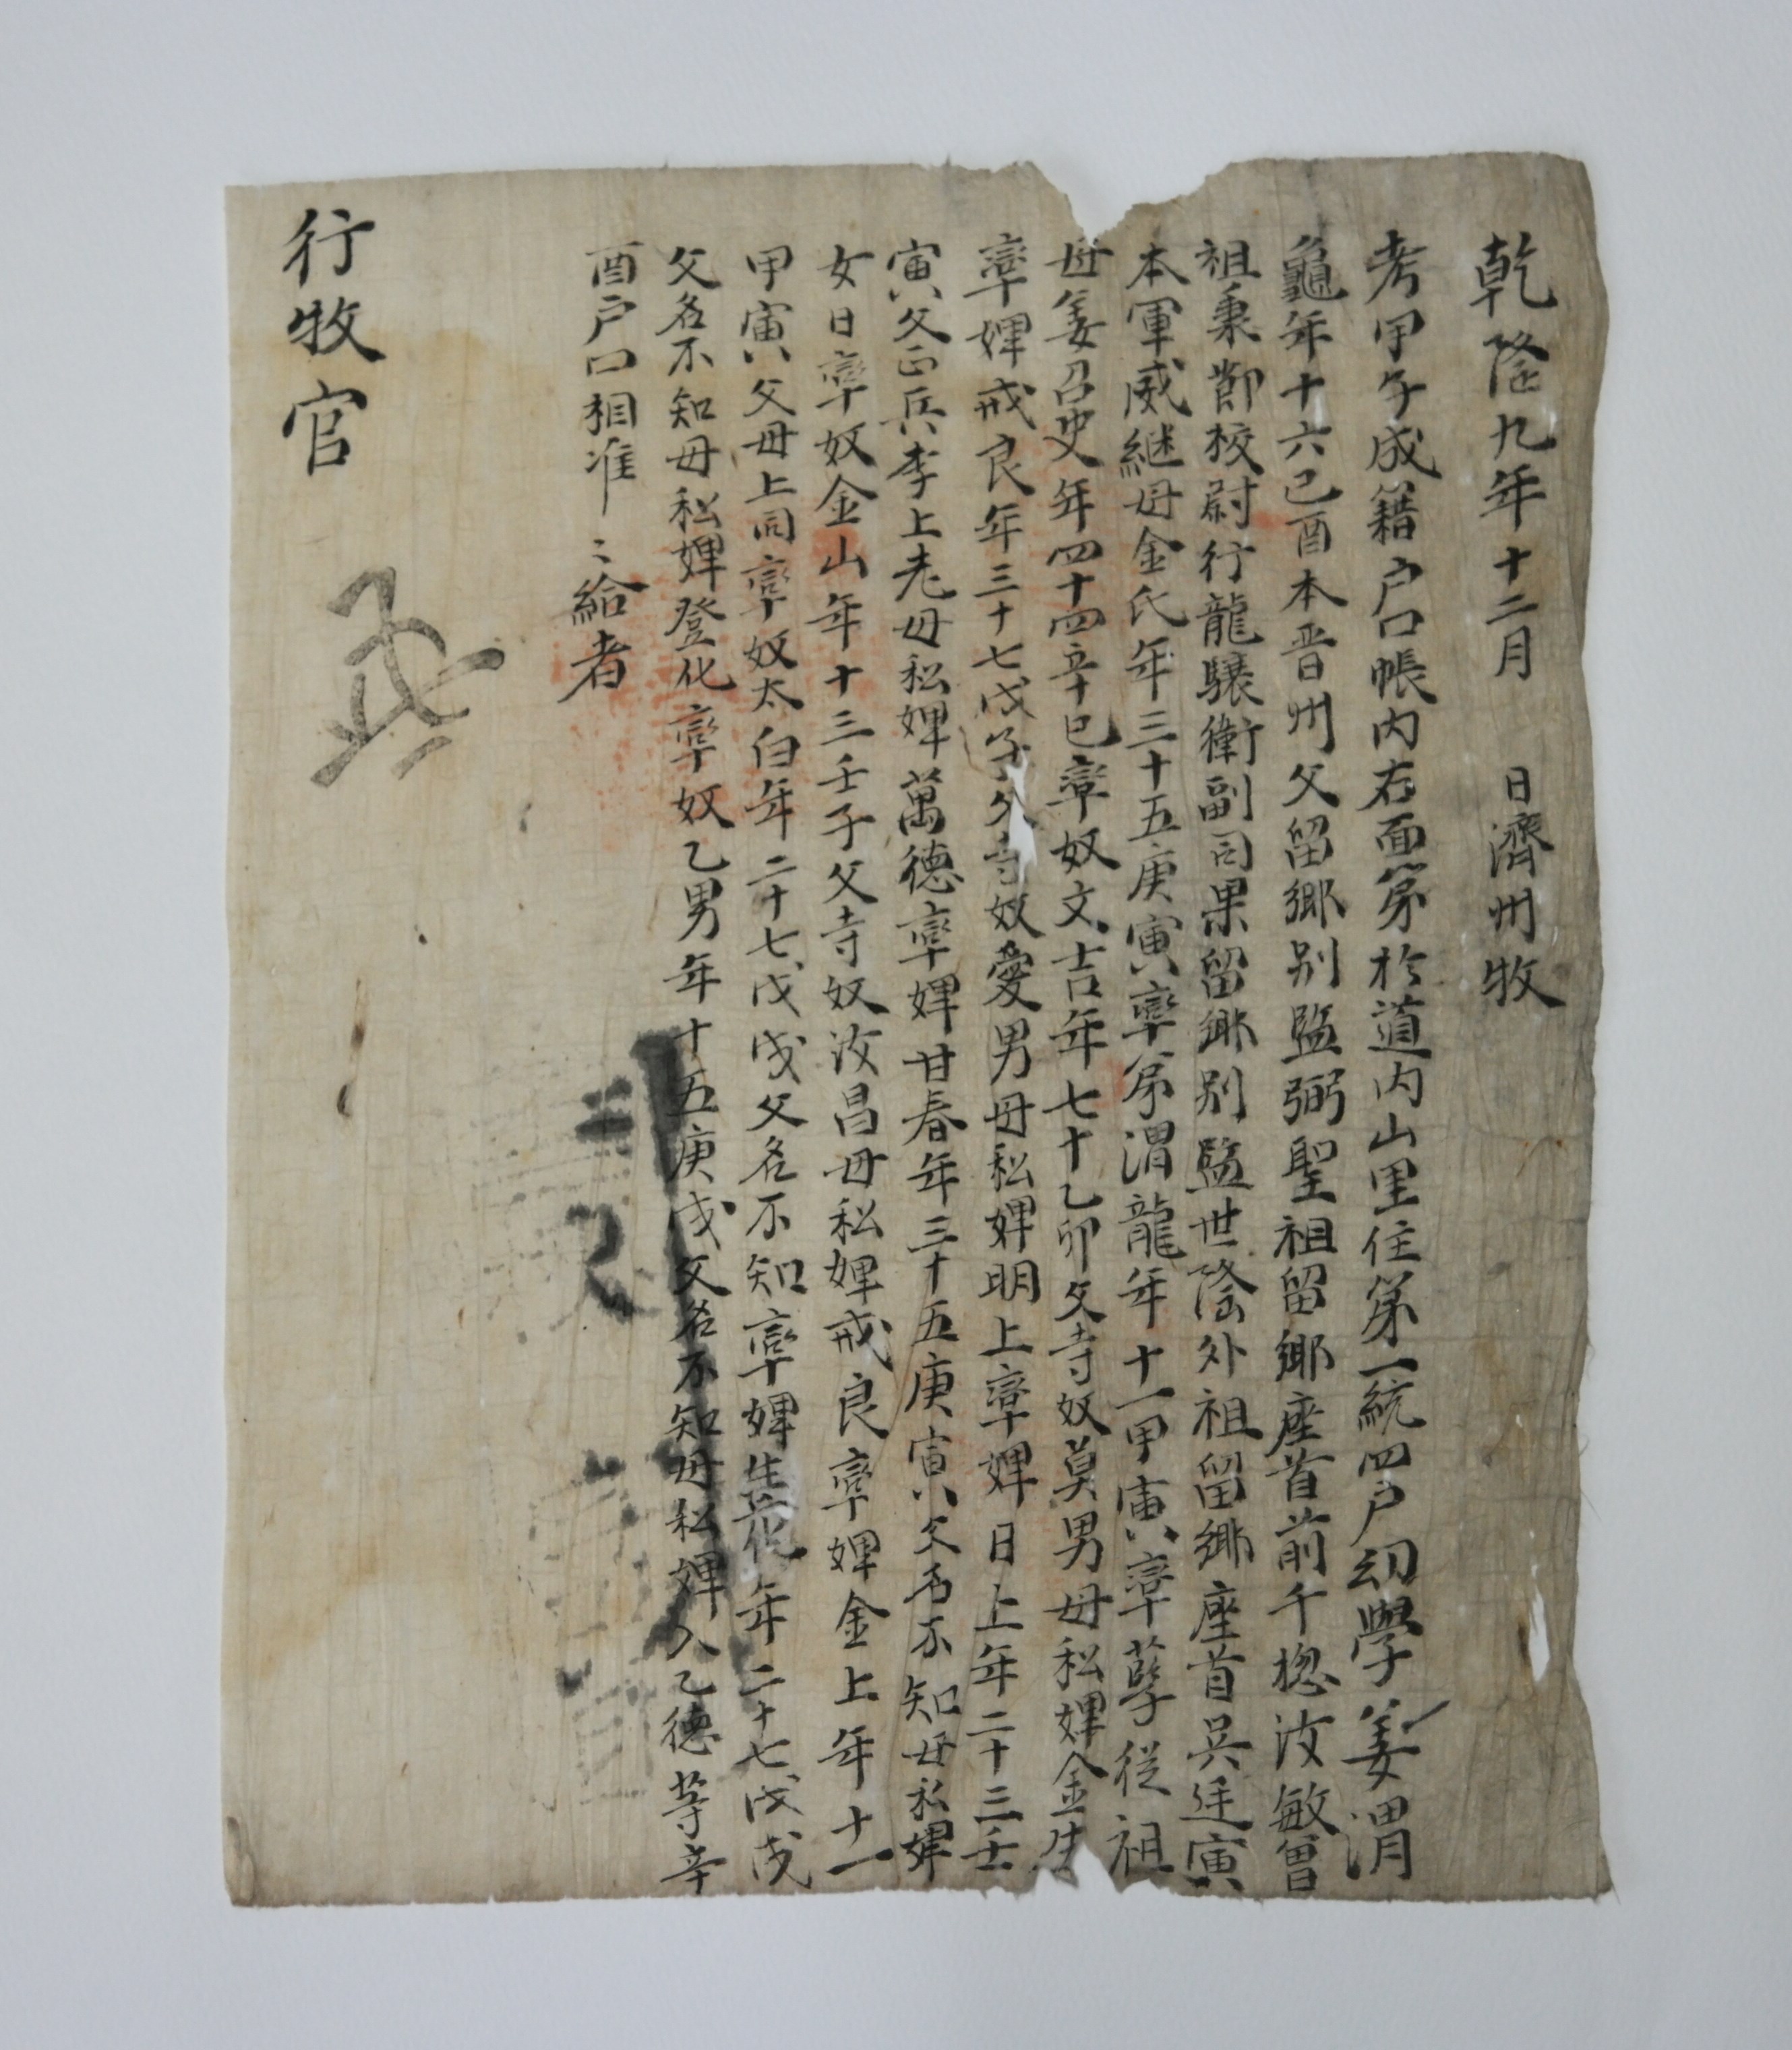 乾隆九年十二月 日濟州牧
考甲子成籍户口帳內右面第於道內山里住第一統四户幼學姜渭
龜年十六己酉本晋州父留鄉别監弼聖祖留鄉座首前千摠汝敏曾
祖秉節校尉行龍驤衛副司果留鄉别監世蔭外祖留鄉座首吳廷寅
本軍威継母金氏年三十五庚寅率弟渭龍年十一甲寅率孽從祖
母姜召史年四十四辛巳率奴文吉年七十乙卯父寺奴莫男母私婢金生
率婢戒良年三十七戊子父寺奴愛男母私婢明上率婢日上年二十三壬
寅父正兵李上老母私婢萬德率婢甘春年三十五庚寅父名不知母私婢
女日率奴金山年十三壬子父寺奴汝昌母私婢戒良率婢金上年十一
甲寅父母上同率奴太白年二十七戊戌父名不知率婢生花年二十七戊戌
父名不知母私婢登化率奴乙男年十五庚戌父名不知母私婢八乙德等辛
酉户口相准〻給者
行牧官